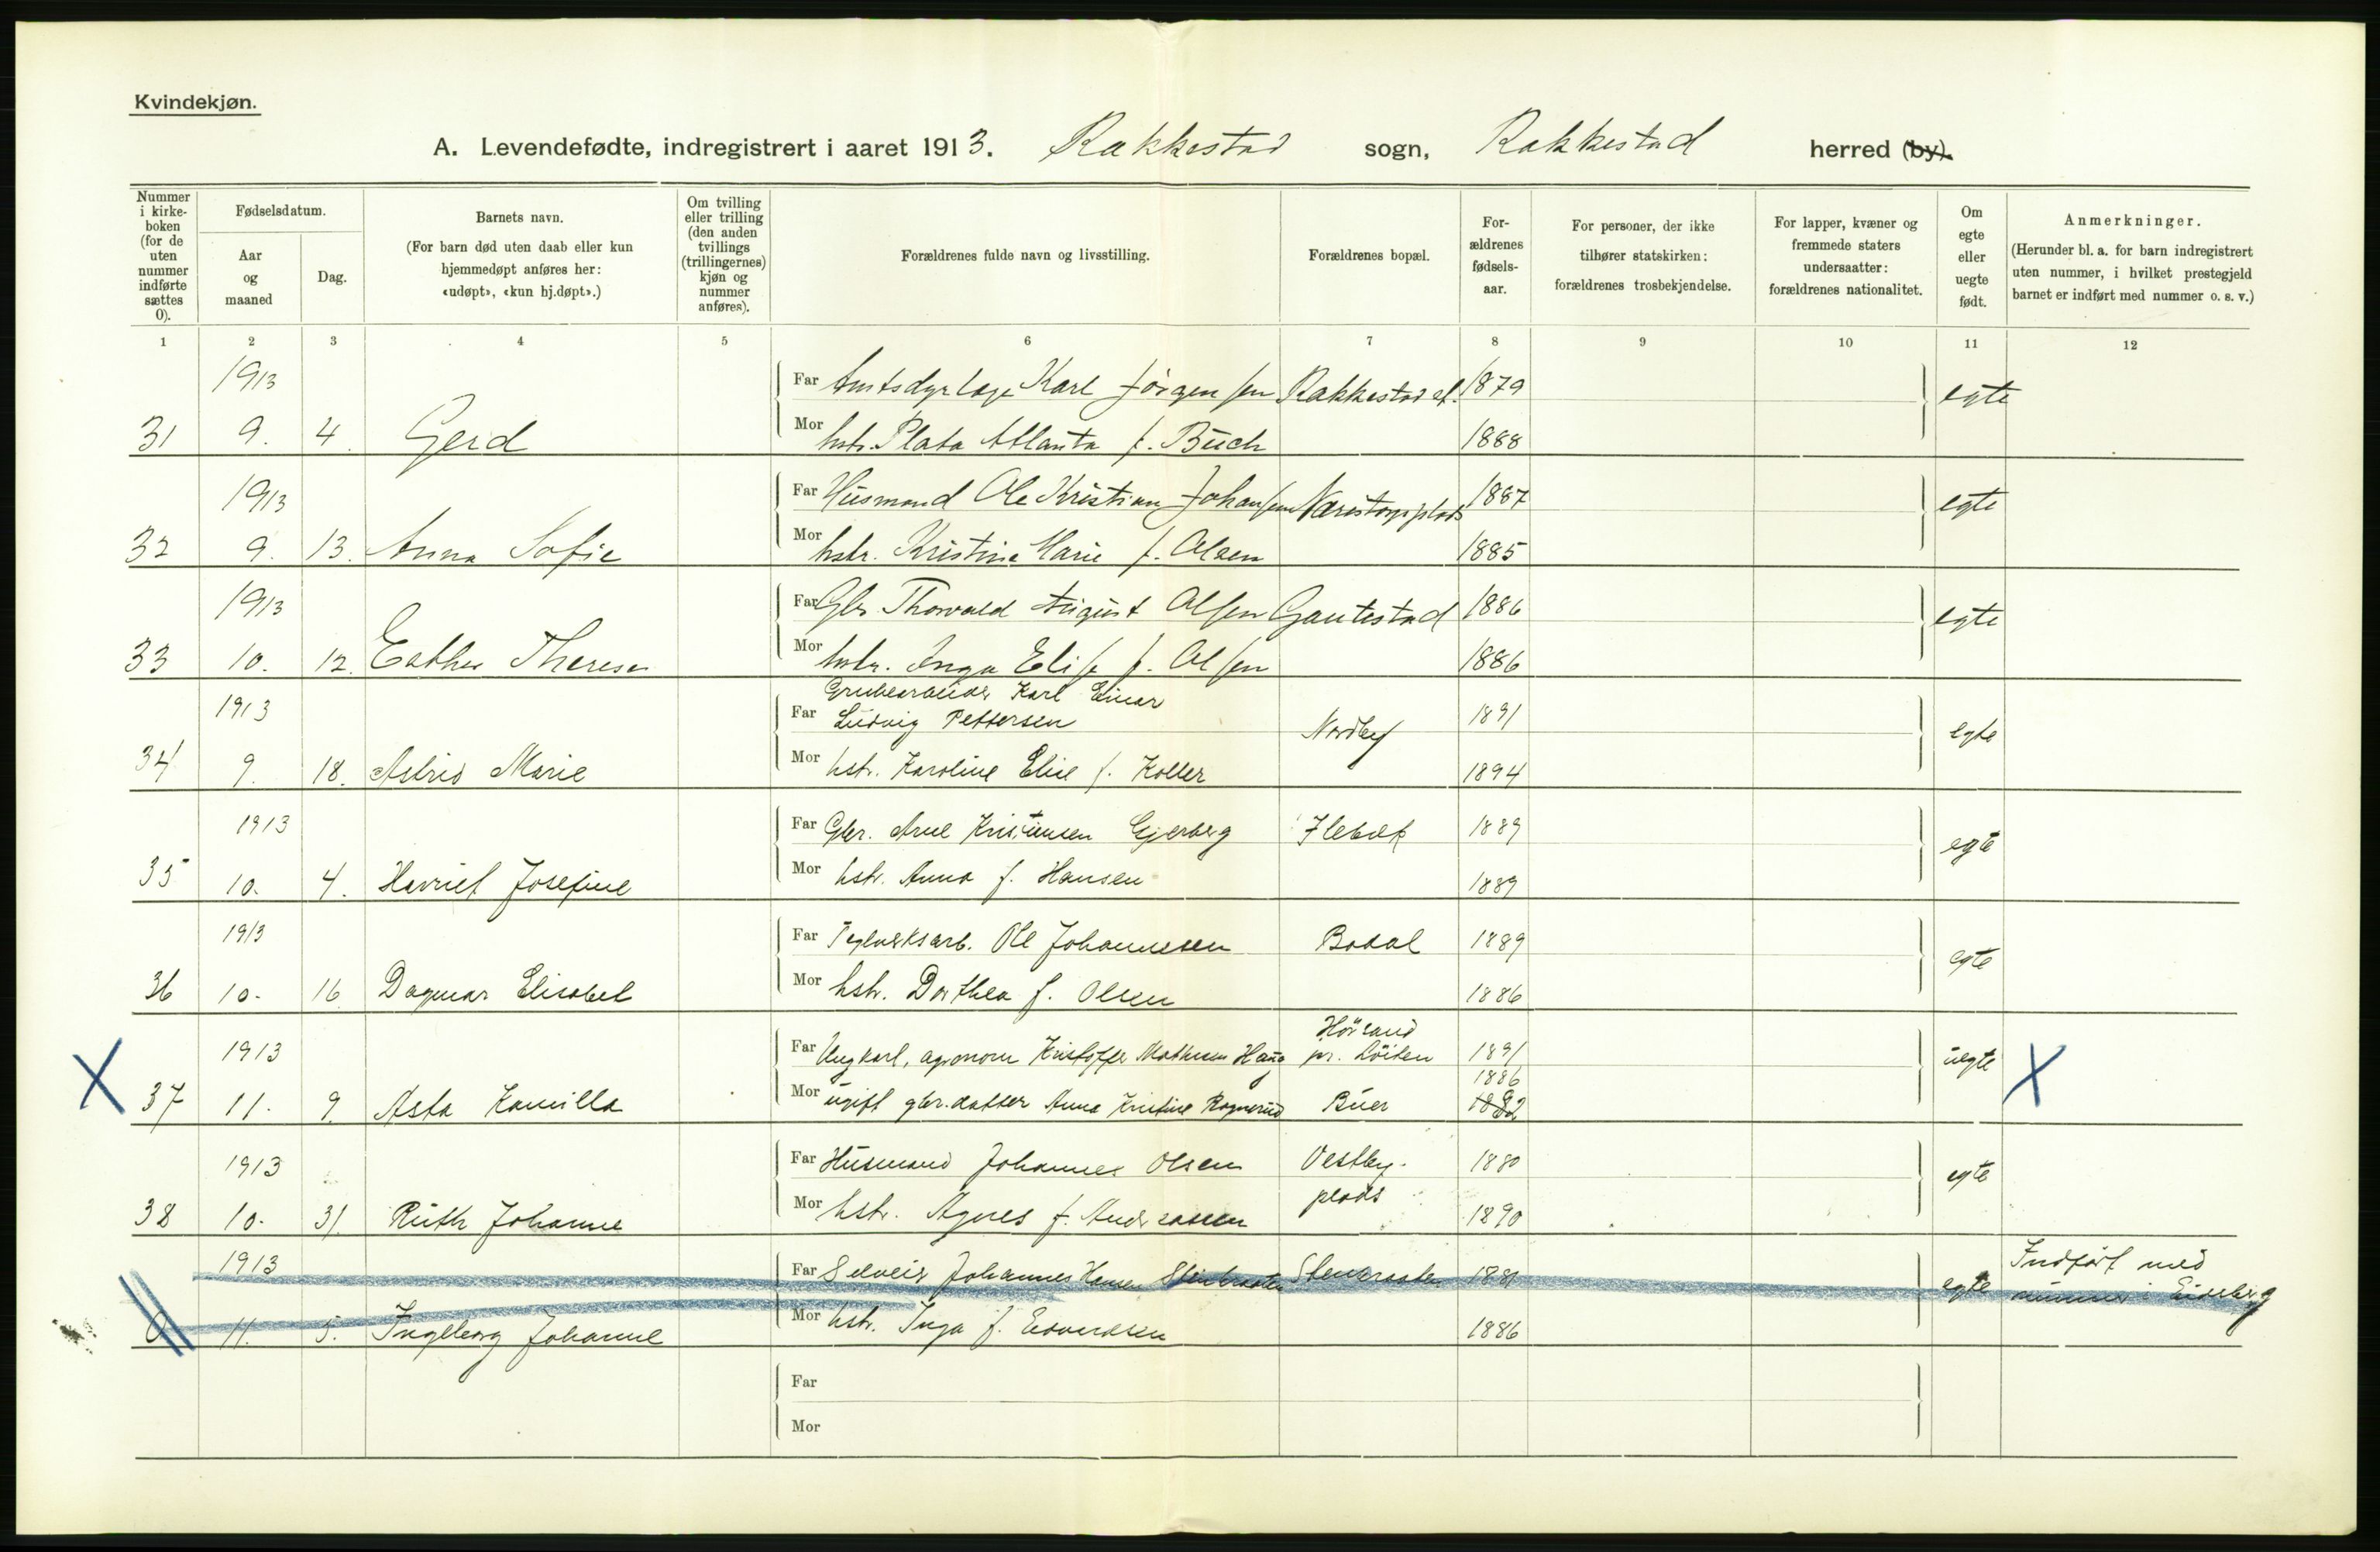 Kvindekjøn.
A. Levendefødte, indregistrert i aaret 1913. Rakkestad sogn, Rakkestad herred (by).
Nummer i kirkeboken (for de uten nummer indførte sættes 0).
Fødselsdatum.
Aar og maaned
Dag.
Barnets navn.
(For barn død uten daab eller kun hjemmedøpt anføres her: «udøpt», «kun hj.døpt».)
Om tvilling eller trilling (den anden tvillings (trillingernes) kjøn og nummer anføres).
Forældrenes fulde navn og livsstilling.
Forældrenes bopæl.
Forældrenes fødselsaar.
For personer, der ikke tilhører statskirken: forældrenes trosbekjendelse.
For lapper, kvæner og fremmede staters undersaatter: forældrenes nationalitet.
Om egte eller uegte født.
Anmerkninger.
(Herunder bl. a. for barn indregistrert uten nummer, i hvilket prestegjeld barnet er indført med nummer o. s. v.)
1 2 3 4 5 6 7 8 9 10 11 12
1913 Far Amtsdyrlæge Karl Jörgensen Rakkestad st. 1879 egte
31 9. 4. Gerd Mor hstr. Plata Atlanta f. Buch 1888
1913 Far Husmand Ole Kristian Johansen 1887 egte
32 9. 13. Anna Sofie Mor hstr. Kristine Marie f. Olsen 1885
1913 Far Gbr. Thorvald August Olsen Gautestad 1886 egte
33 10. 12. Esther Therese Mor hstr. Inga Elise f. Olsen 1886
1913 Far Grubearbeider Karl Einar
Ludvig Pettersen Nordby 1891 egte
34 9. 18. Astrid Marie Mor hstr. Karoline Elise f. Koller 1894
1913 Far Gbr. Arne Kristiansen Gjerberg Flebæk 1889 egte
35 10. 4. Harriet Josefine Mor hstr. Anna f. Hansen 1889
1913 Far Teglverksarb. Ole Johannesen Bodal 1889 egte
36 10. 16 Dagmar Elisabet Mor hstr. Dorthea f. Olsen 1886
1913 Far Ungkarl, agronom Kristoffer Mathisen Haug pr. Löiten 1891 uegte
X 37 11. 9. Asta Kamilla Mor ugift gbr.datter Anna Kristine Rognerud Buer 1886 1882 X
1913 Far Husmand Johannes Olsen Vestby- 1880 egte
plads
38 10. 31. Ruth Johanne Mor hstr. Agnes f. Andreasen 1890
1913 Far Selveier Johannes Hansen Stenbraaten Stenbraaten 1881 egte Indført med
nummer i Eidsberg
0 11. 5. Ingeborg Johanne Mor hstr. Inga f. Edvardsen 1886
Far
Mor